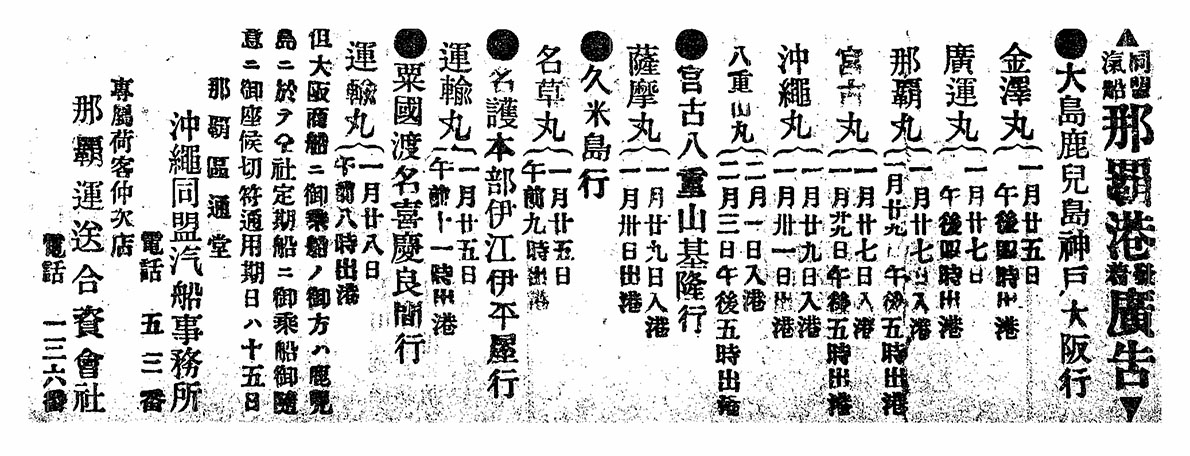 ▲同盟汽船那覇港發着廣告▼
●大島鹿兒島神戸大阪行
金澤丸
一月廿五日
午後四時出港
廣運丸
一月廿七日
午後四時出港
那覇丸
一月廿七日入港
一月廿九日午後五時出港
宮古丸
一月廿七日入港
一月廿九日午後五時出港
沖繩丸
一月廿九日入港
一月卅一日出港
八重山丸
二月一日入港
二月三日午後五時出港
●宮古八重山基隆行
薩摩丸
一月廿九日入港
一月卅日出港
●久米島行
名草丸
一月廿五日
午前九時出港
●名護本部伊江伊平屋行
運輸丸
一月廿五日
午前十一時出港
●粟國渡名喜慶良間行
運輸丸
一月廿八日
午前八時出港
但大阪商船ニ御乘船ノ御方ハ鹿兒
島ニ於テ仝社定期船ニ御乘船御隨
意ニ御座候切符通用期日ハ十五日
那覇區通堂
沖繩同盟汽船事務所
電話 五三番
專屬荷客仲次店
那覇運送合資會社
電話 一三六番